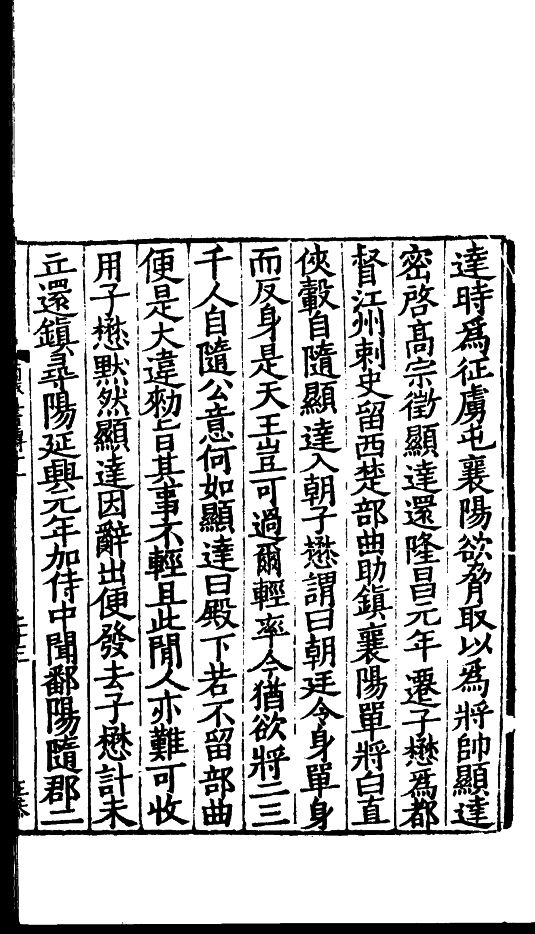 達時爲征虜屯襄陽欲脅取以爲將帥顯達
密啓髙宗徵顯達還隆昌元年遷子懋爲都
督江州刺史留西楚部曲助鎮襄陽單將白直
俠轂自隨顯達入朝子懋謂曰朝廷令身單身
而反身是天王豈可過爾輕率今猶欲將二三
千人自隨公意何如顯達曰殿下若不留部曲
便是大違勑旨其事不輕且此閒人亦難可收
用子懋默然顯達因辭出便發去子懋計未
立還鎮尋陽延興元年加侍中聞鄱陽隨郡二